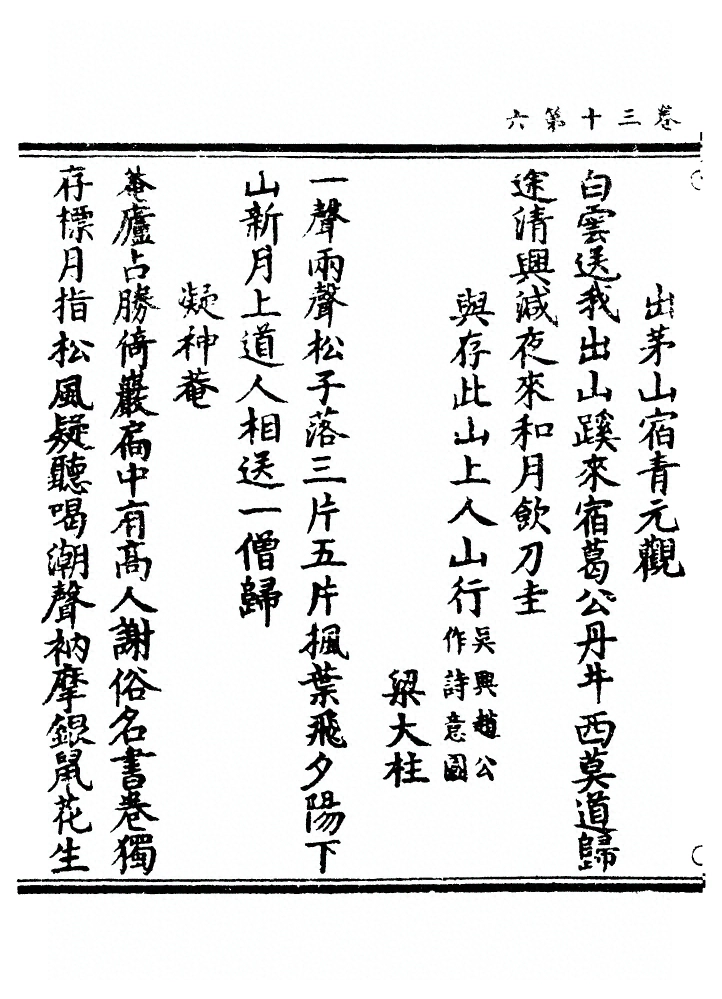 卷三十第六
出茅山宿青元觀
白雲送我出山蹊來宿葛公丹井西莫道歸
途清興減夜來和月飲刀圭
與存此山上人山行吳興趙公作詩意圖
梁大柱
一聲兩聲松子落三片五片楓葉飛夕陽下
山新月上道人相送一僧歸
凝神菴
菴廬占勝倚巖扄中有高人謝俗名書卷獨
存標月指松風疑聽喝潮聲衲摩銀鼠花生